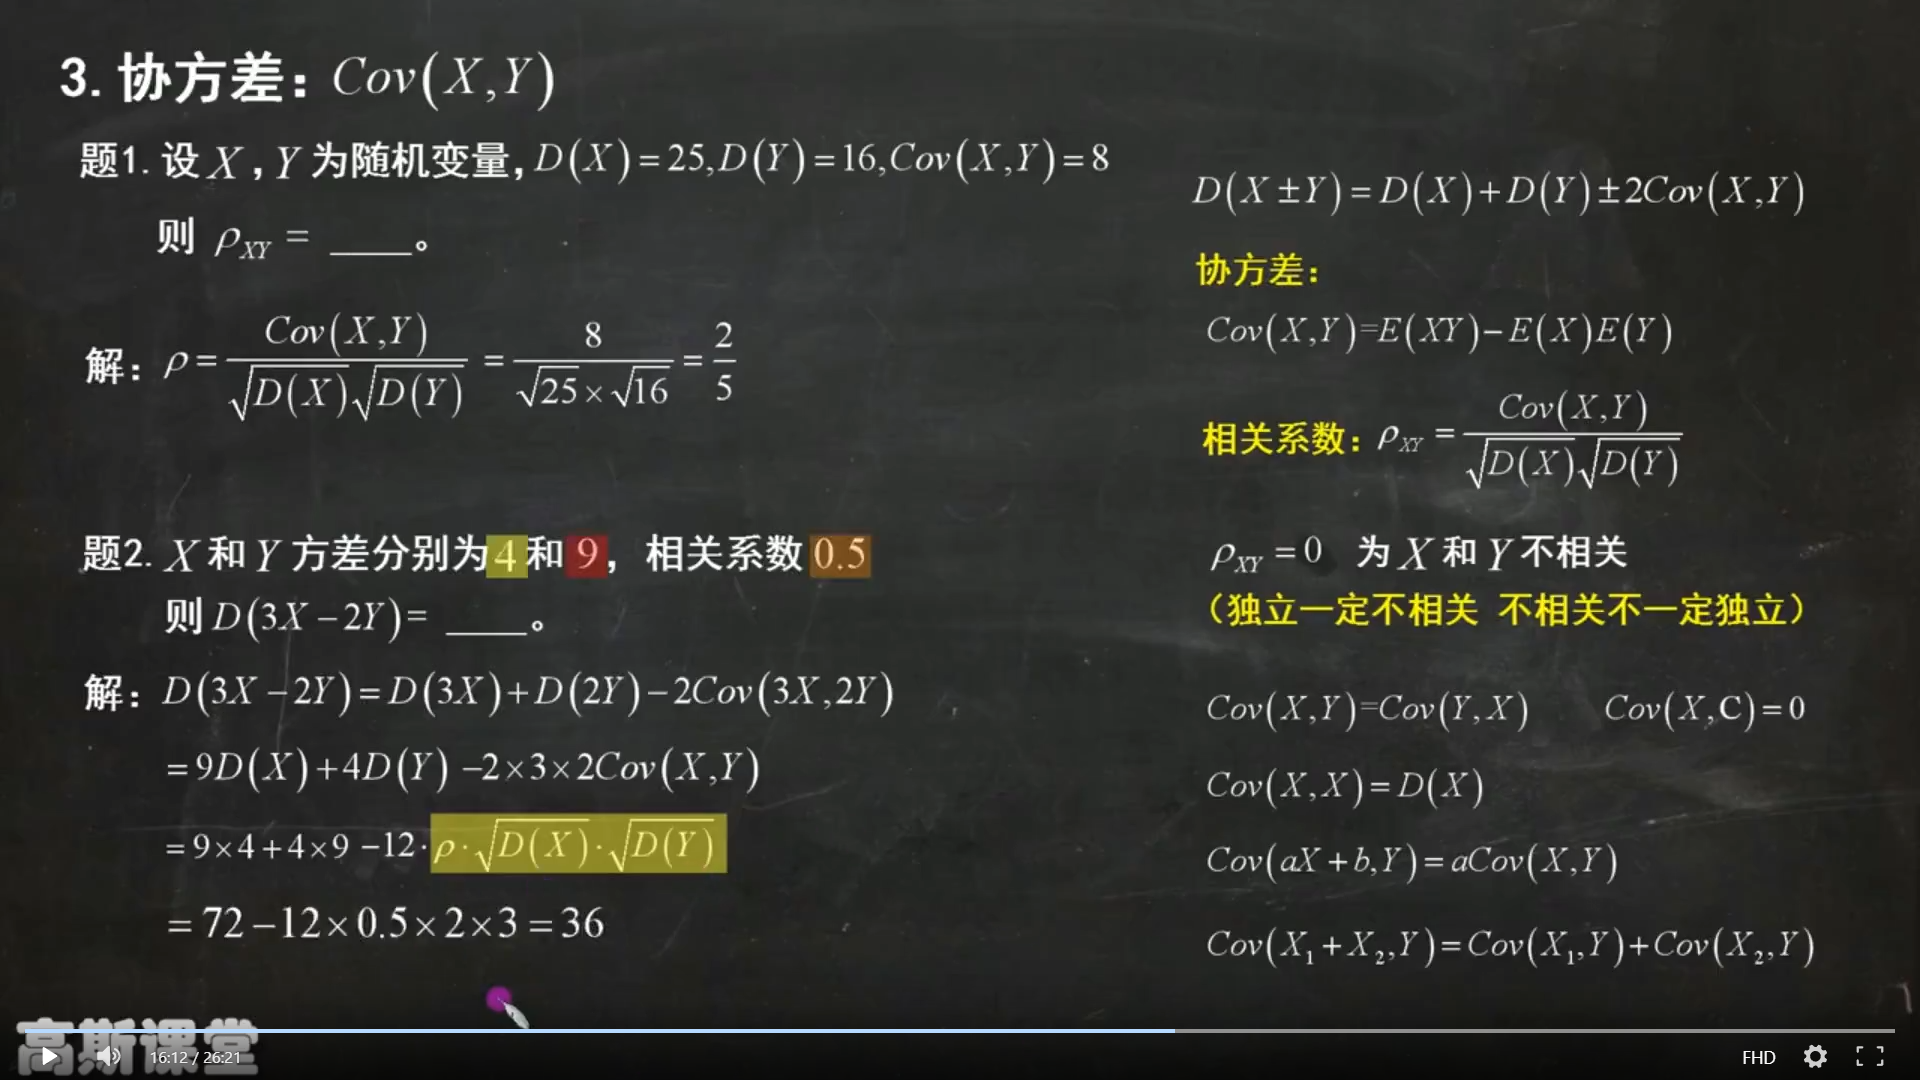 3. 协方差：Cov(X,Y)
题1. 设 X，Y 为随机变量，D(X)=25,D(Y)=16,Cov(X,Y)=8
则 ρ_XY = ____。
解：ρ = Cov(X,Y)/(√D(X)√D(Y)) = 8/(√25×√16) = 2/5
题2. X 和 Y 方差分别为 4 和 9，相关系数 0.5
则 D(3X−2Y)= ____。
解：D(3X−2Y)=D(3X)+D(2Y)−2Cov(3X,2Y)
=9D(X)+4D(Y)−2×3×2Cov(X,Y)
=9×4+4×9−12·ρ·√D(X)·√D(Y)
=72−12×0.5×2×3=36
D(X±Y)=D(X)+D(Y)±2Cov(X,Y)
协方差：
Cov(X,Y)=E(XY)−E(X)E(Y)
相关系数：ρ_XY = Cov(X,Y)/(√D(X)√D(Y))
ρ_XY =0 为 X 和 Y 不相关
（独立一定不相关 不相关不一定独立）
Cov(X,Y)=Cov(Y,X) Cov(X,C)=0
Cov(X,X)=D(X)
Cov(aX+b,Y)=aCov(X,Y)
Cov(X₁+X₂,Y)=Cov(X₁,Y)+Cov(X₂,Y)
高斯课堂
16:12 / 26:21
FHD